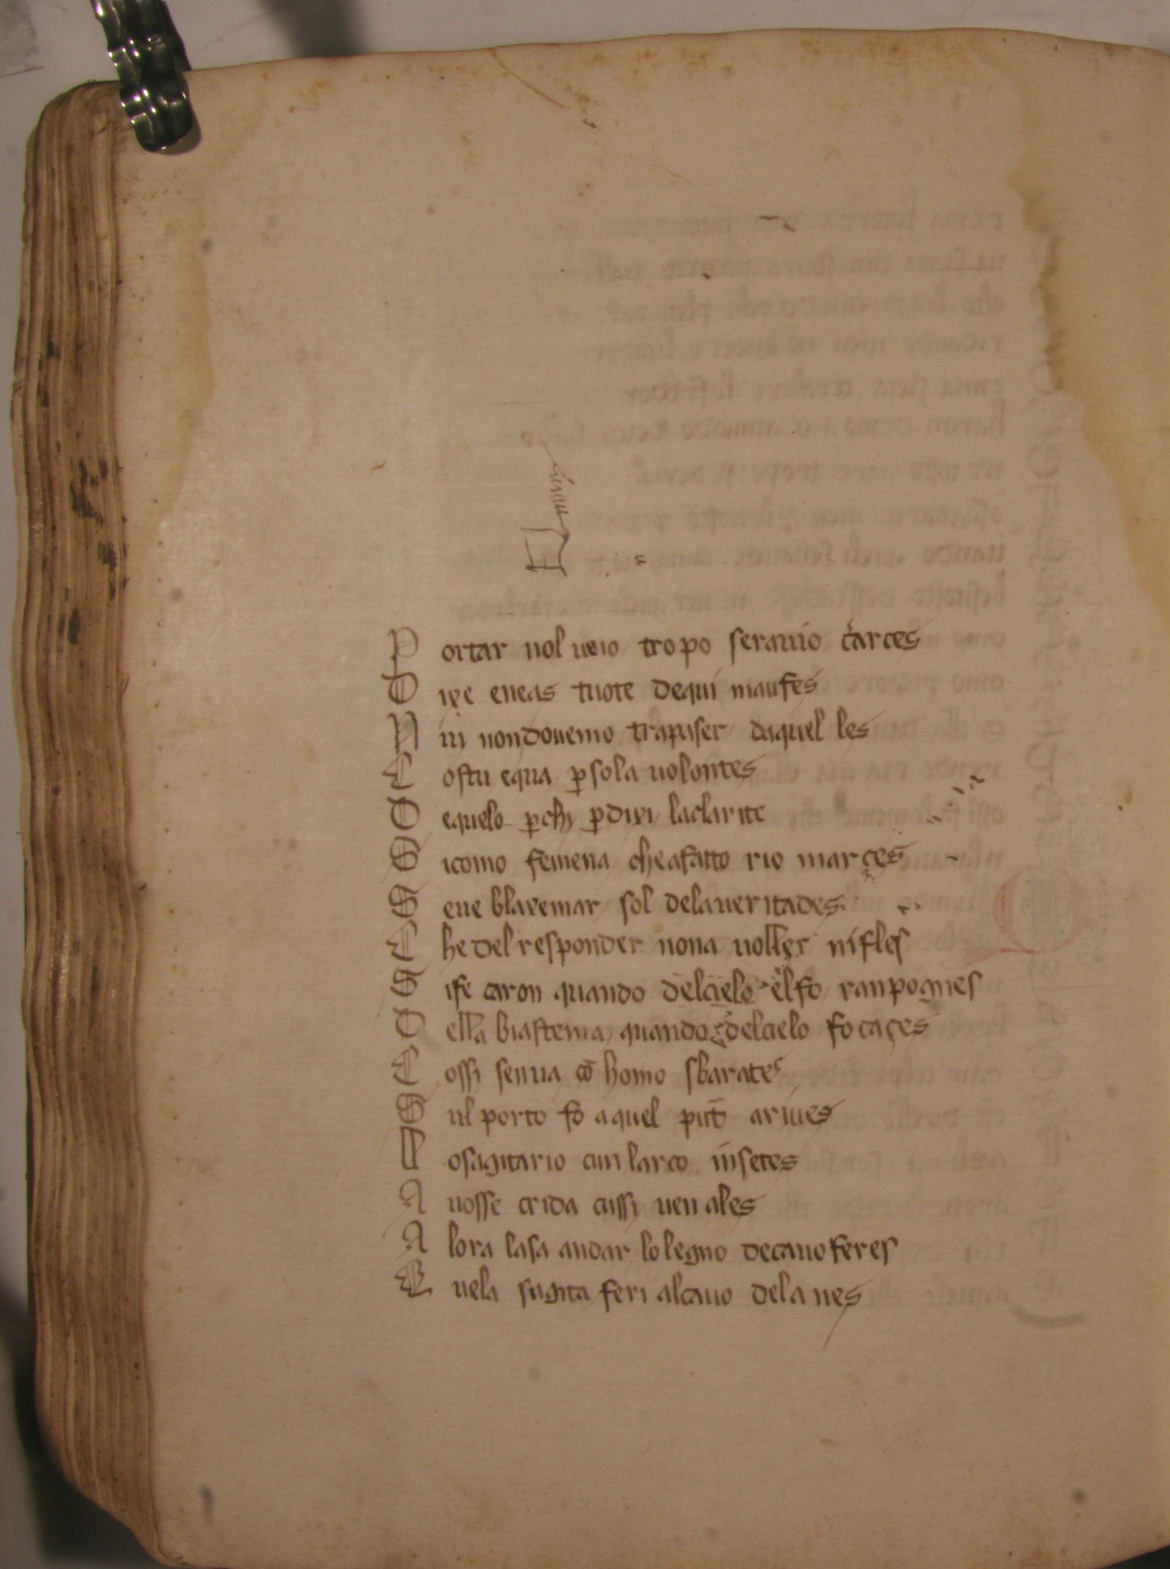 P ortar nol uoio tropo serauio carces
D ixe eneas tuote dequi maufes
N ui nondouemo trapaser daquel les
C ostu equa p sola uolontes
D equelo pchi pdixi laclarite
S icomo femena cheafatto rio marçes
S eue blaxemar sol delaueritades
C he del responder nona uoller nifles
S ise caron quando delcielo elfo ranpognes
D ella biastema quando delcielo fo caçes
C ossi senua co homo sbarates
S ul porto fo aquel puto ariues
L osagitario cun larco insetes
A uosse crida cussi uenales
A lora lasa andar lo legno decauo feres
E uela sagita feri alcauo dela nes